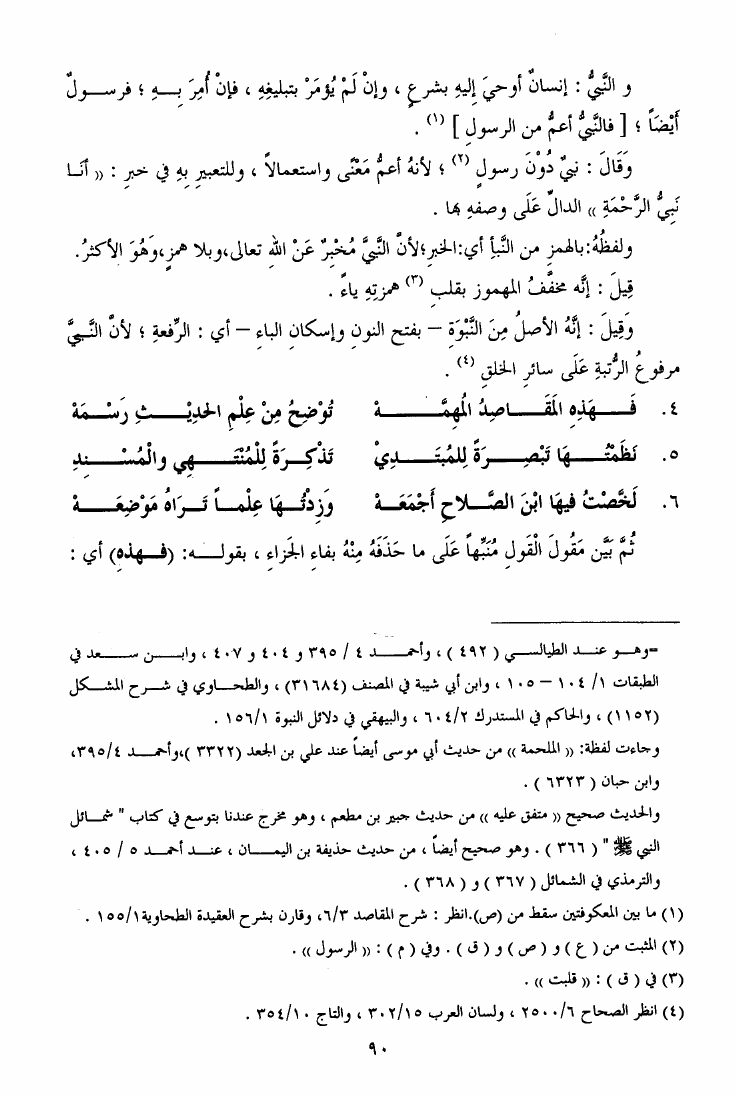 و النَّبيُّ : إنسانٌ أوحيَ إليهِ بشرعٍ ، وإنْ لَمْ يُؤمَرْ بتبليغِهِ ، فإنْ أُمِرَ بِـــهِ ؛ فرســـولٌ
أَيْضَاً ؛ [ فالنَّبيُّ أعمُّ من الرسولِ ] (١) .
وَقَالَ : نبيٌّ دُوْنَ رسولٍ (٢) ؛ لأنهُ أعمُّ مَعْنًى واستعمالاً ، وللتعبيرِ بِهِ في خبرِ : (( أنَـا
نَبيُّ الرَّحْمَةِ )) الدالِّ عَلَى وصفهِ بها .
ولفظُهُ:بالهمزِ من النَّبأِ أي:الخبرِ؛لأنَّ النَّبيَّ مُخْبِرٌ عَنْ اللهِ تعالى،وبلا همزٍ،وَهُوَ الأكثرُ.
قِيلَ : إنَّه مخفَّفُ المهموزِ بقلبِ (٣) همزتِهِ ياءً .
وَقِيلَ : إنَّهُ الأصلُ مِنَ النَّبْوَةِ – بفتح النونِ وإسكانِ الباءِ – أي : الرِّفعةِ ؛ لأنَّ النَّبـيَّ
مرفوعُ الرُّتبةِ عَلَى سائرِ الخلقِ (٤) .
٤. فَــهَذِهِ المَقَـــاصِدُ المُهِمَّـــهْ تُوْضِحُ مِنْ عِلْمِ الحديْـــثِ رَسْـــمَهْ
٥. نَظَمْتُـــهَا تَبْصِـــرَةً لِلمُبتَـــدِيْ تَذْكِـــرَةً لِلْمُنْتَـــهِي والْمُسْـــنِدِ
٦. لَخَّصْتُ فيهَا ابْنَ الصَّـــلاحِ أَجْمَعَهْ وَزِدْتُـــهَا عِلْمـــاً تَـــرَاهُ مَوْضِعَـــهْ
ثُمَّ بَيَّن مَقُولَ الْقَولِ مُنَبِّهاً عَلَى ما حَذَفَهُ مِنْهُ بفاءِ الجَزاءِ ، بقولـــه: (فـــهذهِ) أي :
=وهـــو عنـــد الطيالســـي ( ٤٩٢ ) ، وأحمـــد ٤ / ٣٩٥ و ٤٠٤ و ٤٠٧ ، وابـــن ســـعد في
الطبقات ١/ ١٠٤ – ١٠٥ ، وابن أبي شيبة في المصنف (٣١٦٨٤) ، والطحـــاوي في شـــرح المشـــكل
(١١٥٢) ، والحاكم في المستدرك ٦٠٤/٢ ، والبيهقي في دلائل النبوة ١٥٦/١ .
وجاءت لفظة: (( الملحمة )) من حديث أبي موسى أيضاً عند علي بن الجعد (٣٣٢٢ )،وأحمـــد ٣٩٥/٤،
وابن حبان ( ٦٣٢٣ ) .
والحديث صحيح (( متفق عليه )) من حديث جبير بن مطعم ، وهو مخرج عندنا بتوسع في كتاب " شمـــائل
النبي ﷺ " ( ٣٦٦ ) . وهو صحيح أيضاً ، من حديث حذيفة بن اليمـــان ، عنـــد أحمـــد ٥ / ٤٠٥ ،
والترمذي في الشمائل ( ٣٦٧ ) و ( ٣٦٨ ) .
(١) ما بين المعكوفتين سقط من (ص).انظر : شرح المقاصد ٦/٣، وقارن بشرح العقيدة الطحاوية١٥٥/١ .
(٢) المثبت من ( ع ) و ( ص ) و ( ق ) . وفي ( م ) : (( الرسول )) .
(٣) في ( ق ) : (( قلبت )) .
(٤) انظر الصحاح ٢٥٠٠/٦ ، ولسان العرب ٣٠٢/١٥ ، والتاج ٣٥٤/١٠ .
٩٠